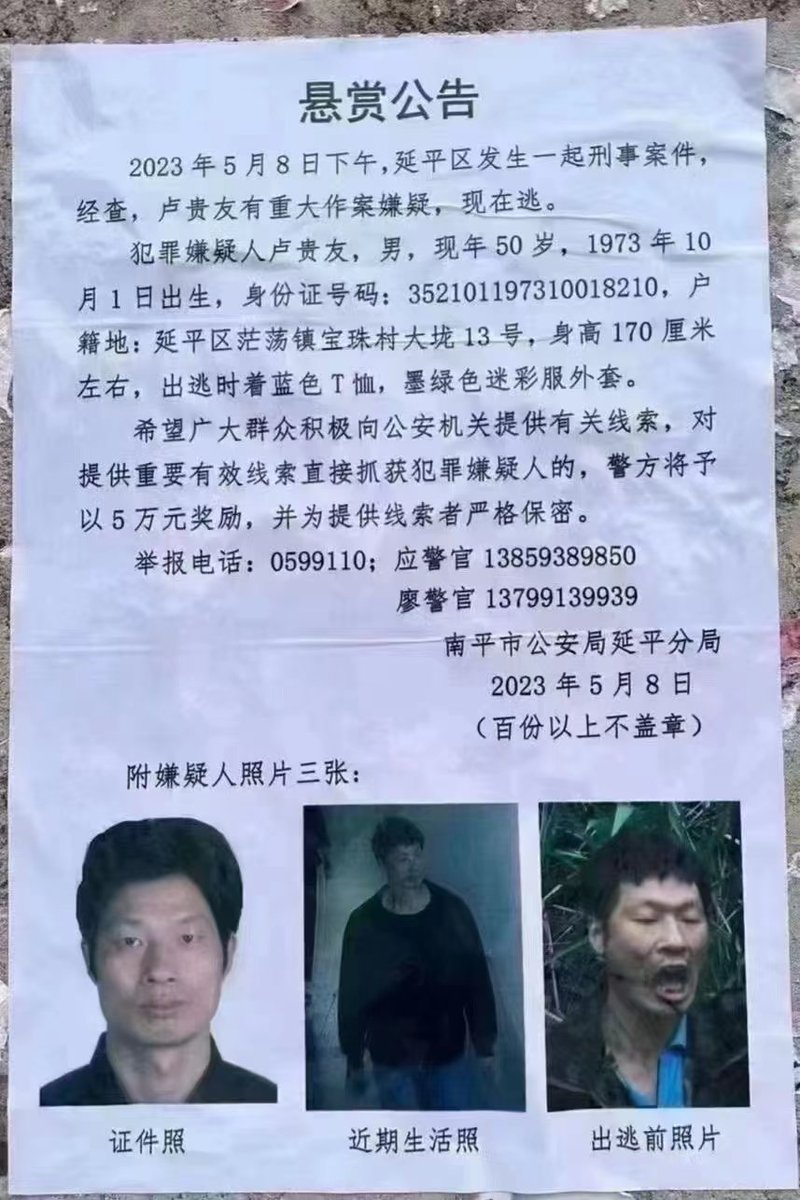 悬赏公告
2023年5月8日下午，延平区发生一起刑事案件，
经查，卢贵友有重大作案嫌疑，现在逃。
犯罪嫌疑人卢贵友，男，现年50岁，1973年10
月1日出生，身份证号码：352101197310018210，户
籍地：延平区茫荡镇宝珠村大垅13号，身高170厘米
左右，出逃时着蓝色T恤，墨绿色迷彩服外套。
希望广大群众积极向公安机关提供有关线索，对
提供重要有效线索直接抓获犯罪嫌疑人的，警方将予
以5万元奖励，并为提供线索者严格保密。
举报电话：0599110；应警官13859389850
廖警官13799139939
南平市公安局延平分局
2023年5月8日
（百份以上不盖章）
附嫌疑人照片三张：
证件照
近期生活照
出逃前照片